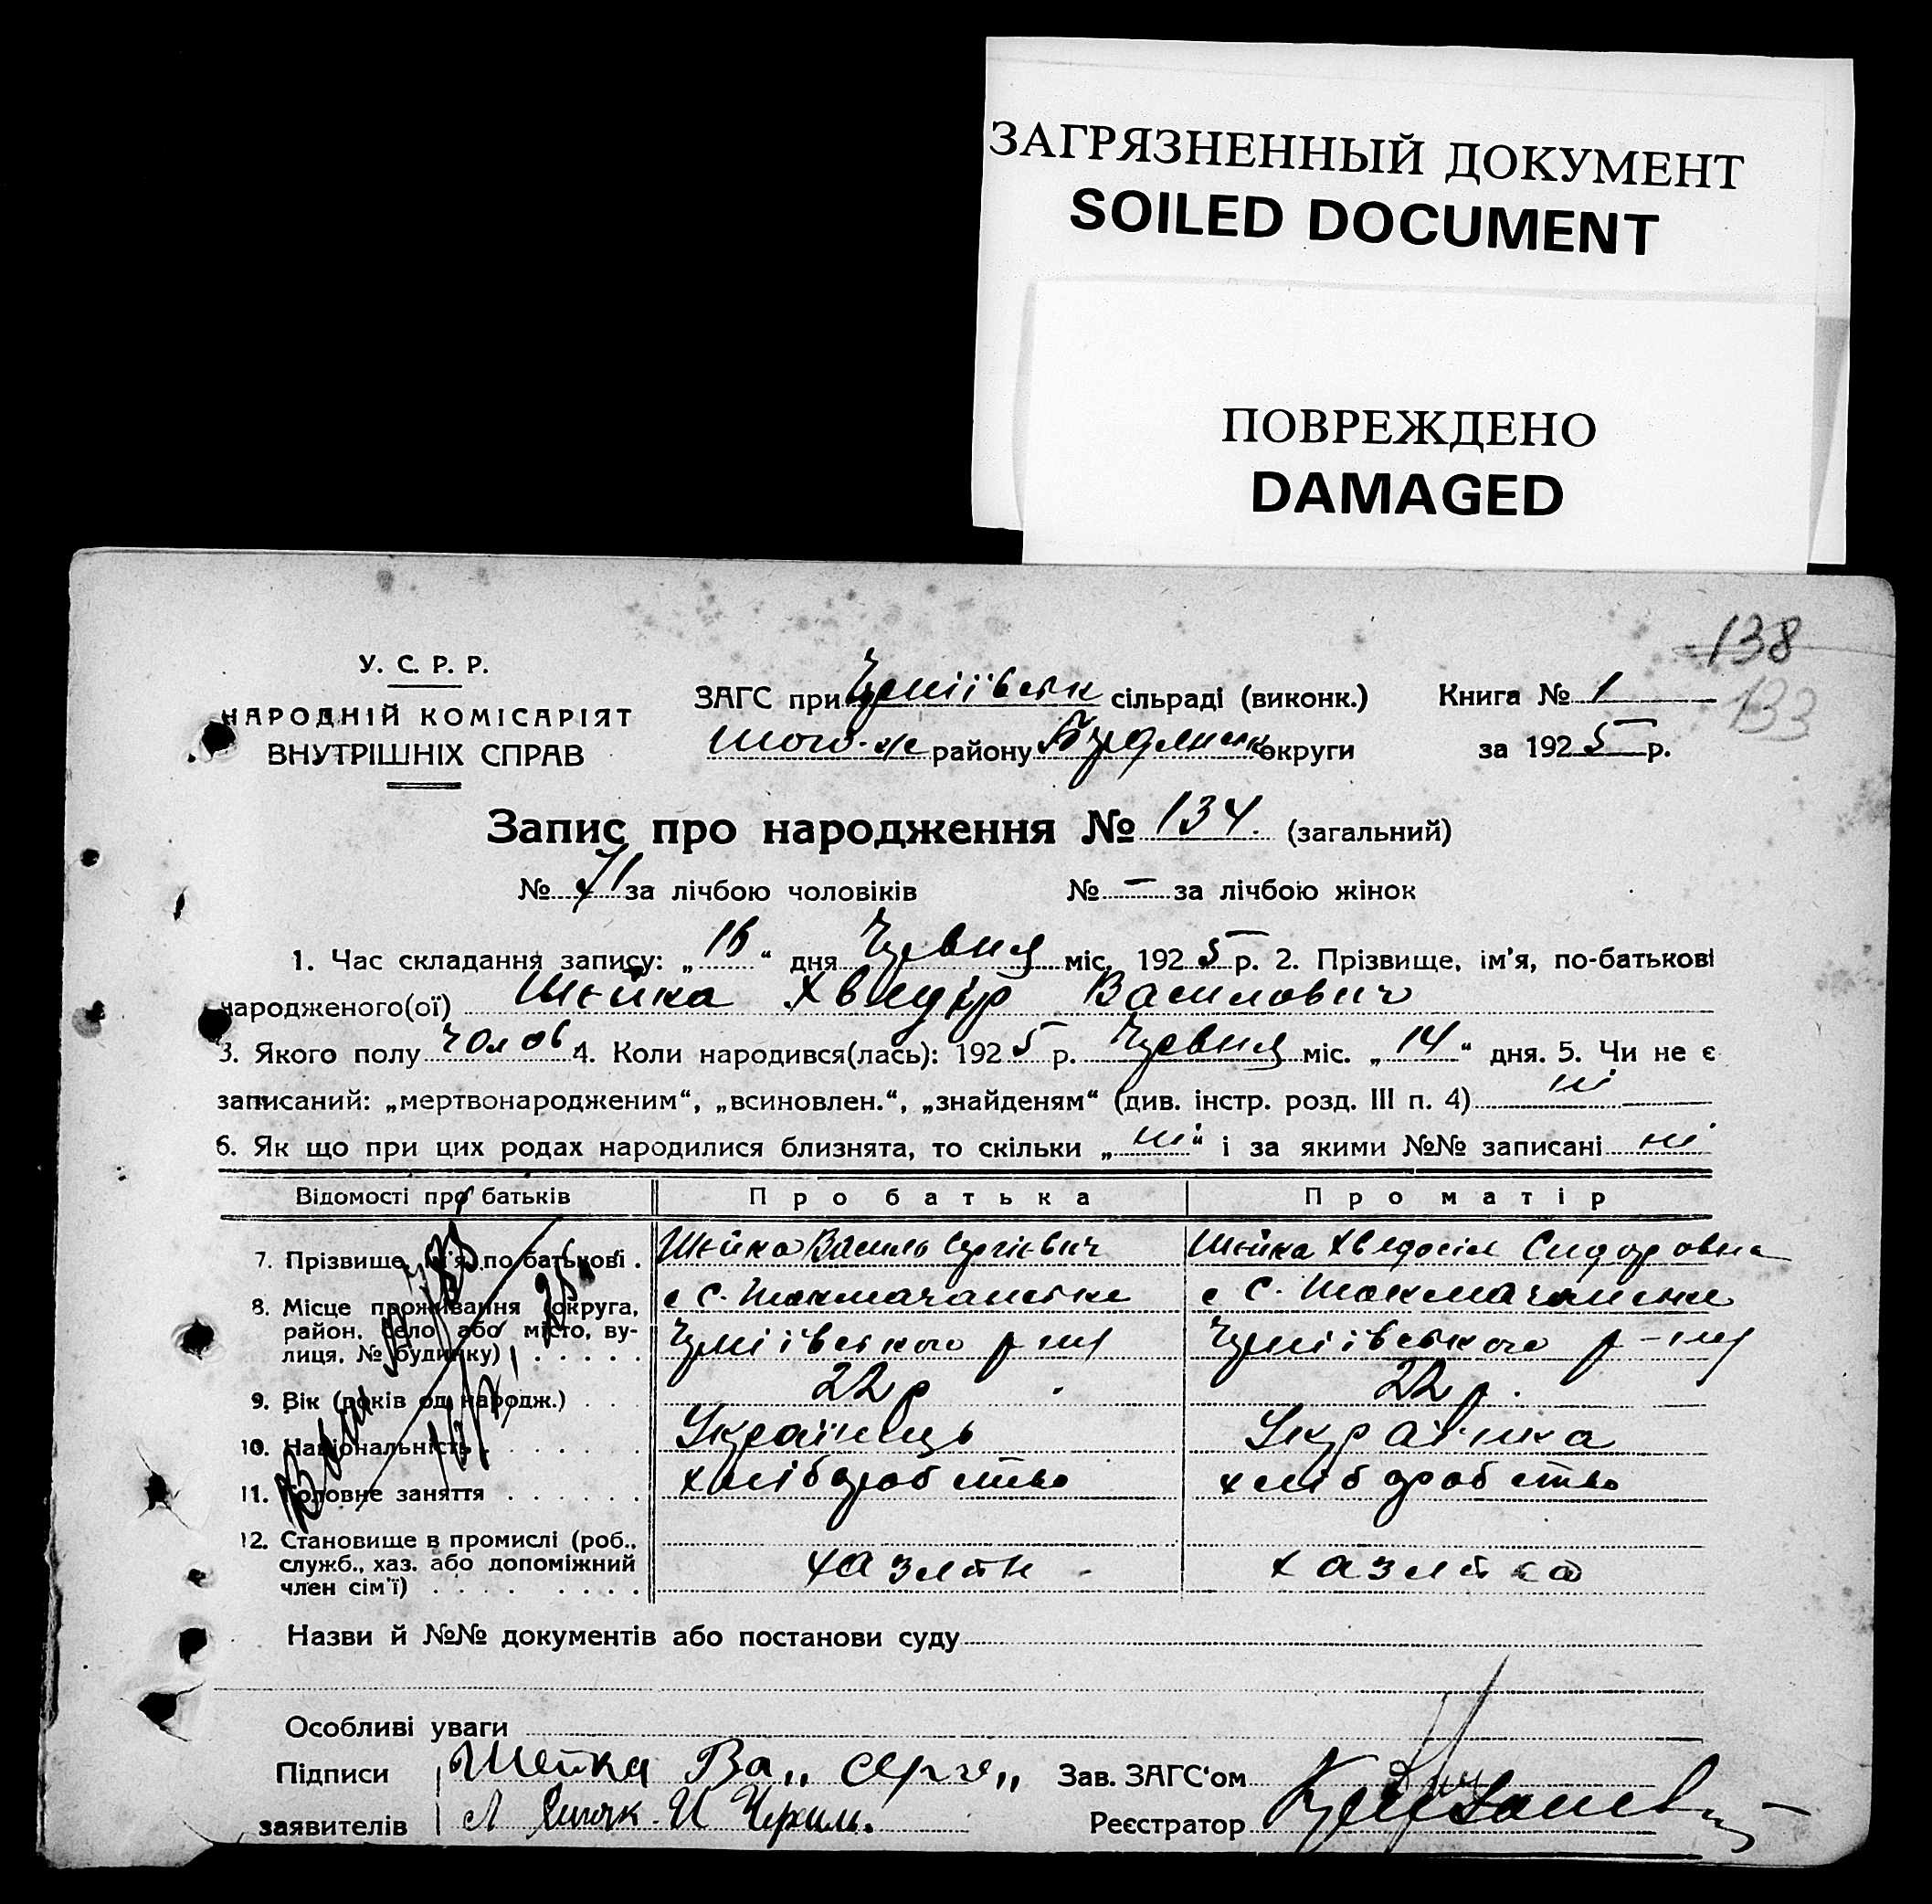 ЗАГРЯЗНЕННЫЙ ДОКУМЕНТ
SOILED DOCUMENT
ПОВРЕЖДЕНО
DAMAGED
138
133
У. С. Р. Р.
НАРОДНІЙ КОМІСАРІЯТ
ВНУТРІШНІХ СПРАВ
ЗАГС при сільраді (виконк.)
Книга № 1
того-же району округи
за 1925 р.
Запис про народження № 134. (загальний)
№ 71 за лічбою чоловіків № — за лічбою жінок
1. Час складання запису: „16“ дня Червня міс. 1925 р. 2. Прізвище, ім'я, по-батькові
народженого(ої) Шейка Хведір Василович
3. Якого полу чолов 4. Коли народився(лась): 1925 р. Червня міс. „14“ дня. 5. Чи не є
записаний: „мертвонародженим“, „всиновлен.“, „знайденям“ (див. інстр. розд. III п. 4) ні
6. Як що при цих родах народилися близнята, то скільки „ні“ і за якими №№ записані ні
Відомості про батьків Про батька Про матір
7. Прізвище, ім'я, по батькові . Шейка Василь Сергієвич Шейка Хведосія Сидоровна
8. Місце проживання (округа,
район, село або місто, ву-
лиця, № будинку) . . . . .
с. Токмачанська с. Токмачанська
р-ну р-ну
9. Вік (років од народж.) . . . 22 р 22 р.
10. Національність . . . . . . Українець Українка
11. Головне заняття . . . . . . хліборобство хліборобство
12. Становище в промислі (роб.,
служб., хаз. або допоміжний
член сім'ї) . . . . . . .
хазяїн хазяйка
Назви й №№ документів або постанови суду
Особливі уваги
Підписи Шейка Ва„ Серге„ Зав. ЗАГС'ом
заявителів Реєстратор